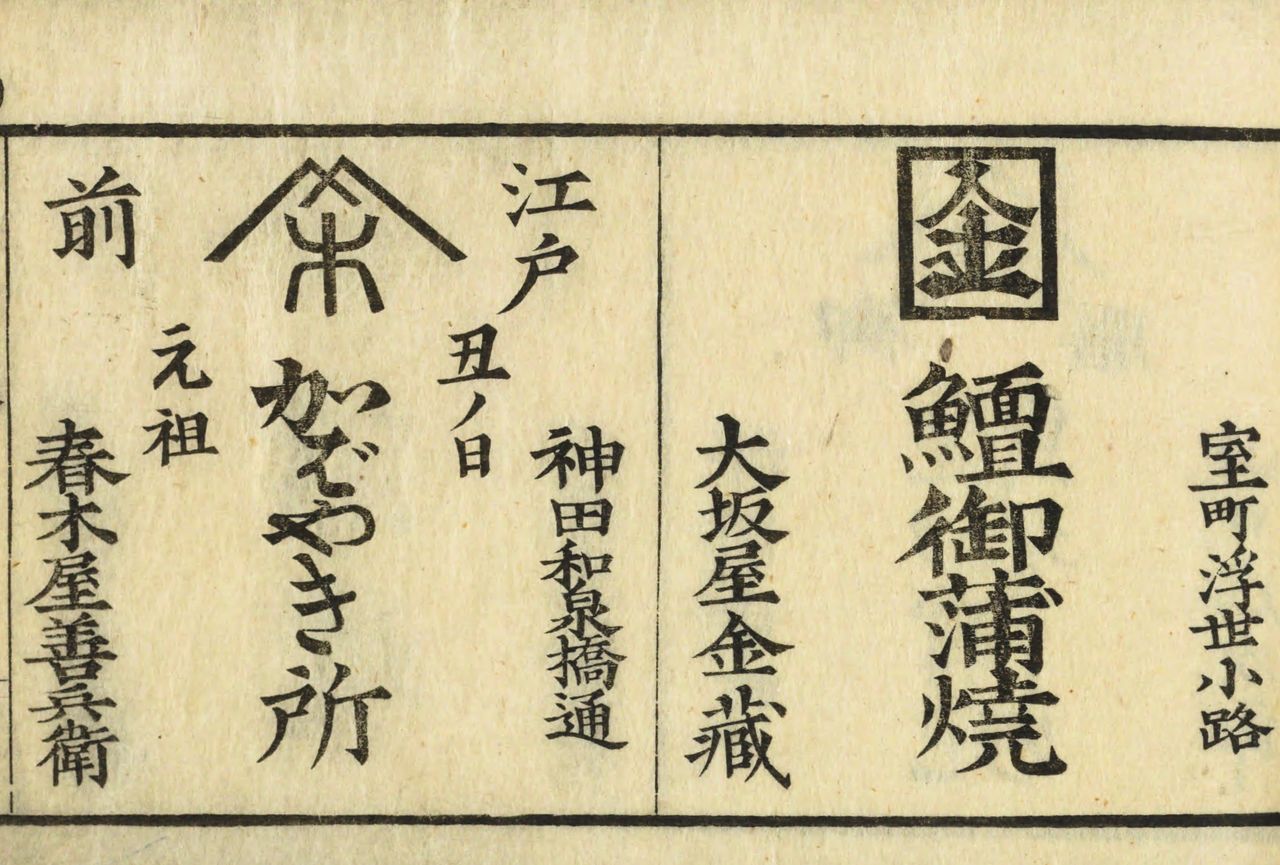 室町浮世小路
金
鱣御蒲焼
大坂屋金藏
神田和泉橋通
江戸
丑ノ日
かばやき所
元祖
前
春木屋善兵衛